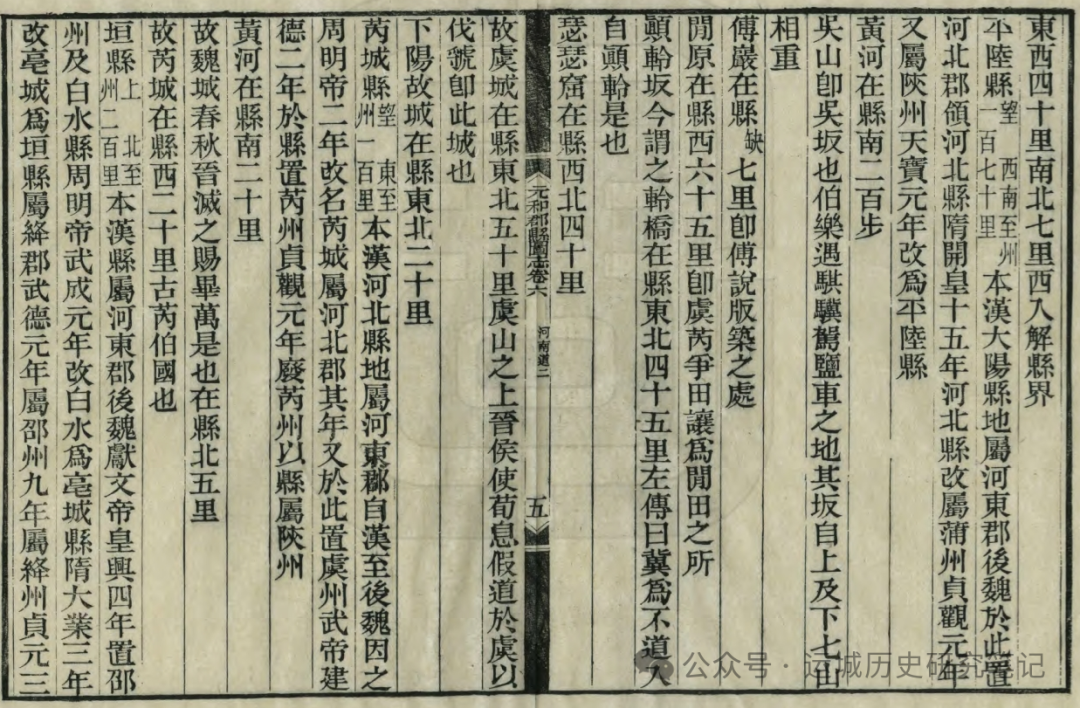 東西四十里南北七里西入解縣界
平陸縣望 西南至州一百七十里本漢大陽縣地屬河東郡後魏於此置
河北郡領河北縣隋開皇十五年河北縣改屬蒲州貞觀元年
又屬陝州天寶元年改爲平陸縣
黃河在縣南二百步
吳山卽吳坂也伯樂遇騏驥駕鹽車之地其坂自上及下七山
相重
傅巖在縣缺七里卽傅說版築之處
閒原在縣西六十五里卽虞芮爭田讓爲閒田之所
顚軨坂今謂之軨橋在縣東北四十五里左傳曰冀爲不道入
自顚軨是也
瑟瑟窟在縣西北四十里
元和郡縣圖志卷六 河南道二 五
故虞城在縣東北五十里虞山之上晉侯使荀息假道於虞以
伐虢卽此城也
下陽故城在縣東北二十里
芮城縣望 東至州一百里本漢河北縣地屬河東郡自漢至後魏因之
周明帝二年改名芮城屬河北郡其年又於此置虞州武帝建
德二年於縣置芮州貞觀元年廢芮州以縣屬陝州
黃河在縣南二十里
故魏城春秋晉滅之賜畢萬是也在縣北五里
故芮城在縣西二十里古芮伯國也
垣縣上 北至州二百里本漢縣屬河東郡後魏獻文帝皇興四年置邵
州及白水縣周明帝武成元年改白水爲亳城縣隋大業三年
改亳城爲垣縣屬絳郡武德元年屬邵州九年屬絳州貞元三
公众号·运城历史研究笔记